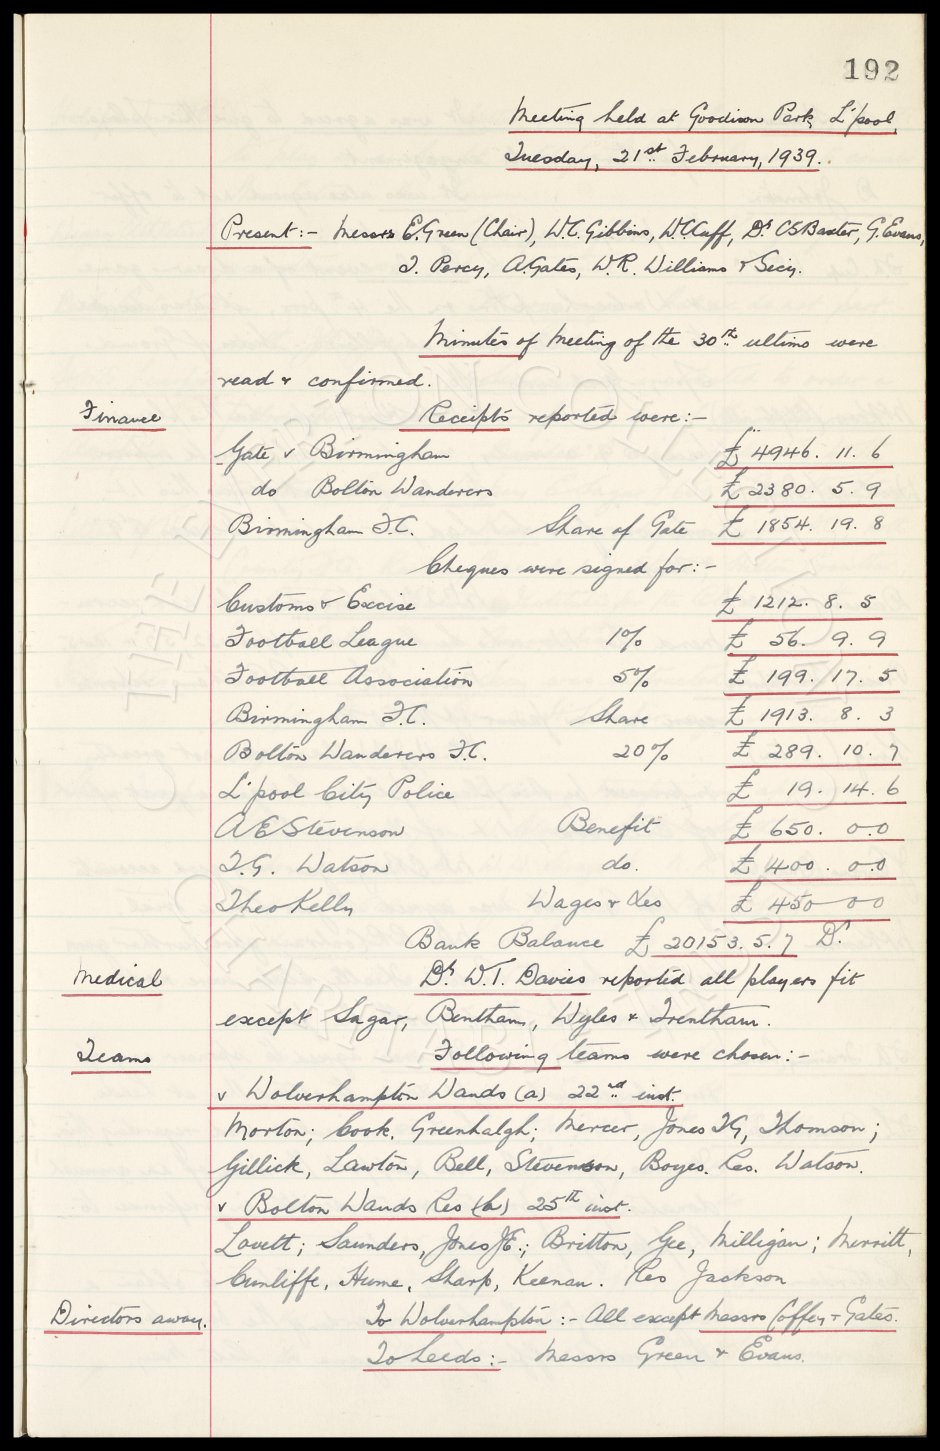 192
Meeting held at Goodison Park, L'pool,
Tuesday, 21st February, 1939.
Present:- Messrs E. Green (Chair), W.C. Gibbins, W.C. Cuff, Dr CS Baxter, G. Evans,
T. Percy, A. Gates, W.R. Williams & Secy.
Minutes of Meeting of the 30th ultimo were
read & confirmed.
Finance Receipts reported were:-
Gate v Birmingham £4946. 11. 6
do Bolton Wanderers £2380. 5. 9
Birmingham F.C. Share of Gate £1854. 19. 8
Cheques were signed for:-
Customs & Excise £1212. 8. 5
Football League 1% £56. 9. 9
Football Association 5% £199. 17. 5
Birmingham F.C. Share £1913. 8. 3
Bolton Wanderers F.C. 20% £289. 10. 7
L'pool City Police £19. 14. 6
A E Stevenson Benefit £650. 0.0
T.G. Watson do. £400. 0.0
Theo Kelly Wages & Xes £450 0 0
Bank Balance £20153. 5. 7 Dr.
Medical Dr. W.T. Davies reported all players fit
except Sagar, Bentham, Wyles & Trentham.
Teams Following teams were chosen:-
v Wolverhampton Wands (a) 22nd inst.
Morton; Cook, Greenhalgh; Mercer, Jones TG, Thomson;
Gillick, Lawton, Bell, Stevenson, Boyes. Res. Watson.
v Bolton Wands Res (h) 25th inst.
Lovett; Saunders, Jones JE.; Britton, Gee, Milligan; Merritt,
Cunliffe, Hume, Sharp, Keenan. Res Jackson
Directors away. To Wolverhampton:- All except Messrs Coffey & Gates.
To Leeds:- Messrs Green & Evans.